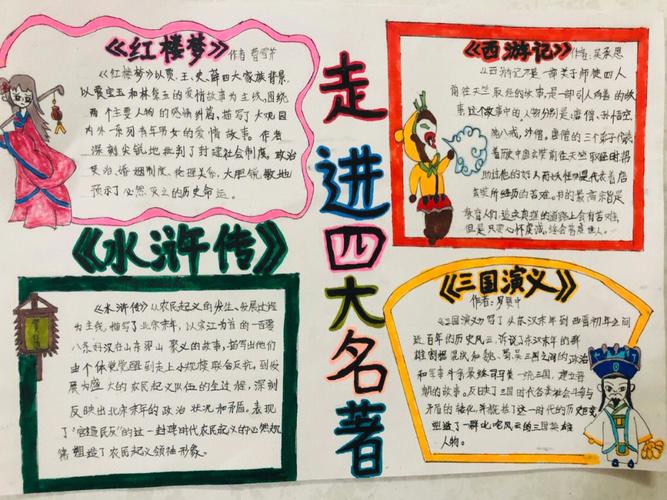 走进四大名著
《红楼梦》 作者 曹雪芹
《红楼梦》以贾、王、史、薛四大家族背景
以贾宝玉和林黛玉的爱情故事为主线，围绕
两个主要人物的感情纠葛，描写了大观园
内外一系列青年男女的爱情故事。作者
深刻尖锐地批判了封建社会制度，政治
统治，婚姻制度，伦理关系，大胆
预示了必然灭亡的历史命运。
《西游记》 作者：吴承恩
《西游记》是一部关于师徒四人
前往天竺取经的故事，是一部引人向善的故
事。这个故事中的人物分别是：唐僧、孙悟空、
猪八戒，沙僧，唐僧的三个弟子
《水浒传》
《水浒传》以农民起义的发生、发展过程
为主线，描写了北宋末年，以宋江为首的一百零
八条好汉在山东梁山聚义的故事，描写出他们
由个体觉醒到走上小规模联合反抗，到发
展为盛大的农民起义队伍的全过程，深刻
反映出北宋末年的政治状况和矛盾。表现
了“官逼民反”的这一封建时代农民起义的必然规
塑造了农民起义领袖形象。
《三国演义》
作者：罗贯中
《三国演义》写了从东汉末年到西晋初年之间
近百年的历史风云，诉说了东汉末年的群
雄割据混战和魏、蜀、吴三国之间的政治
和军事斗争最终司马炎一统三国，建立晋
朝的故事。反映了三国时代各类社会斗争与
矛盾的转化，并概括了这一时代的历史巨变，
塑造了一群叱咤风云的三国英雄
人物。